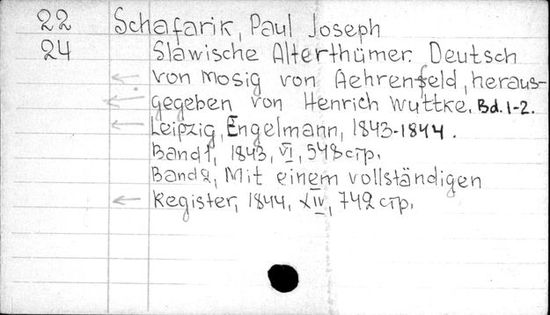 22 Schafarik, Paul Joseph
24 Slawische Alterthümer. Deutsch
von Mosig von Aehrenfeld, heraus-
gegeben von Henrich Wuttke. Bd. 1-2.
Leipzig, Engelmann, 1843-1844.
Band 1, 1843, VI, 548 стр.
Band 2, Mit einem vollständigen
Register, 1844, XIV, 742 стр.